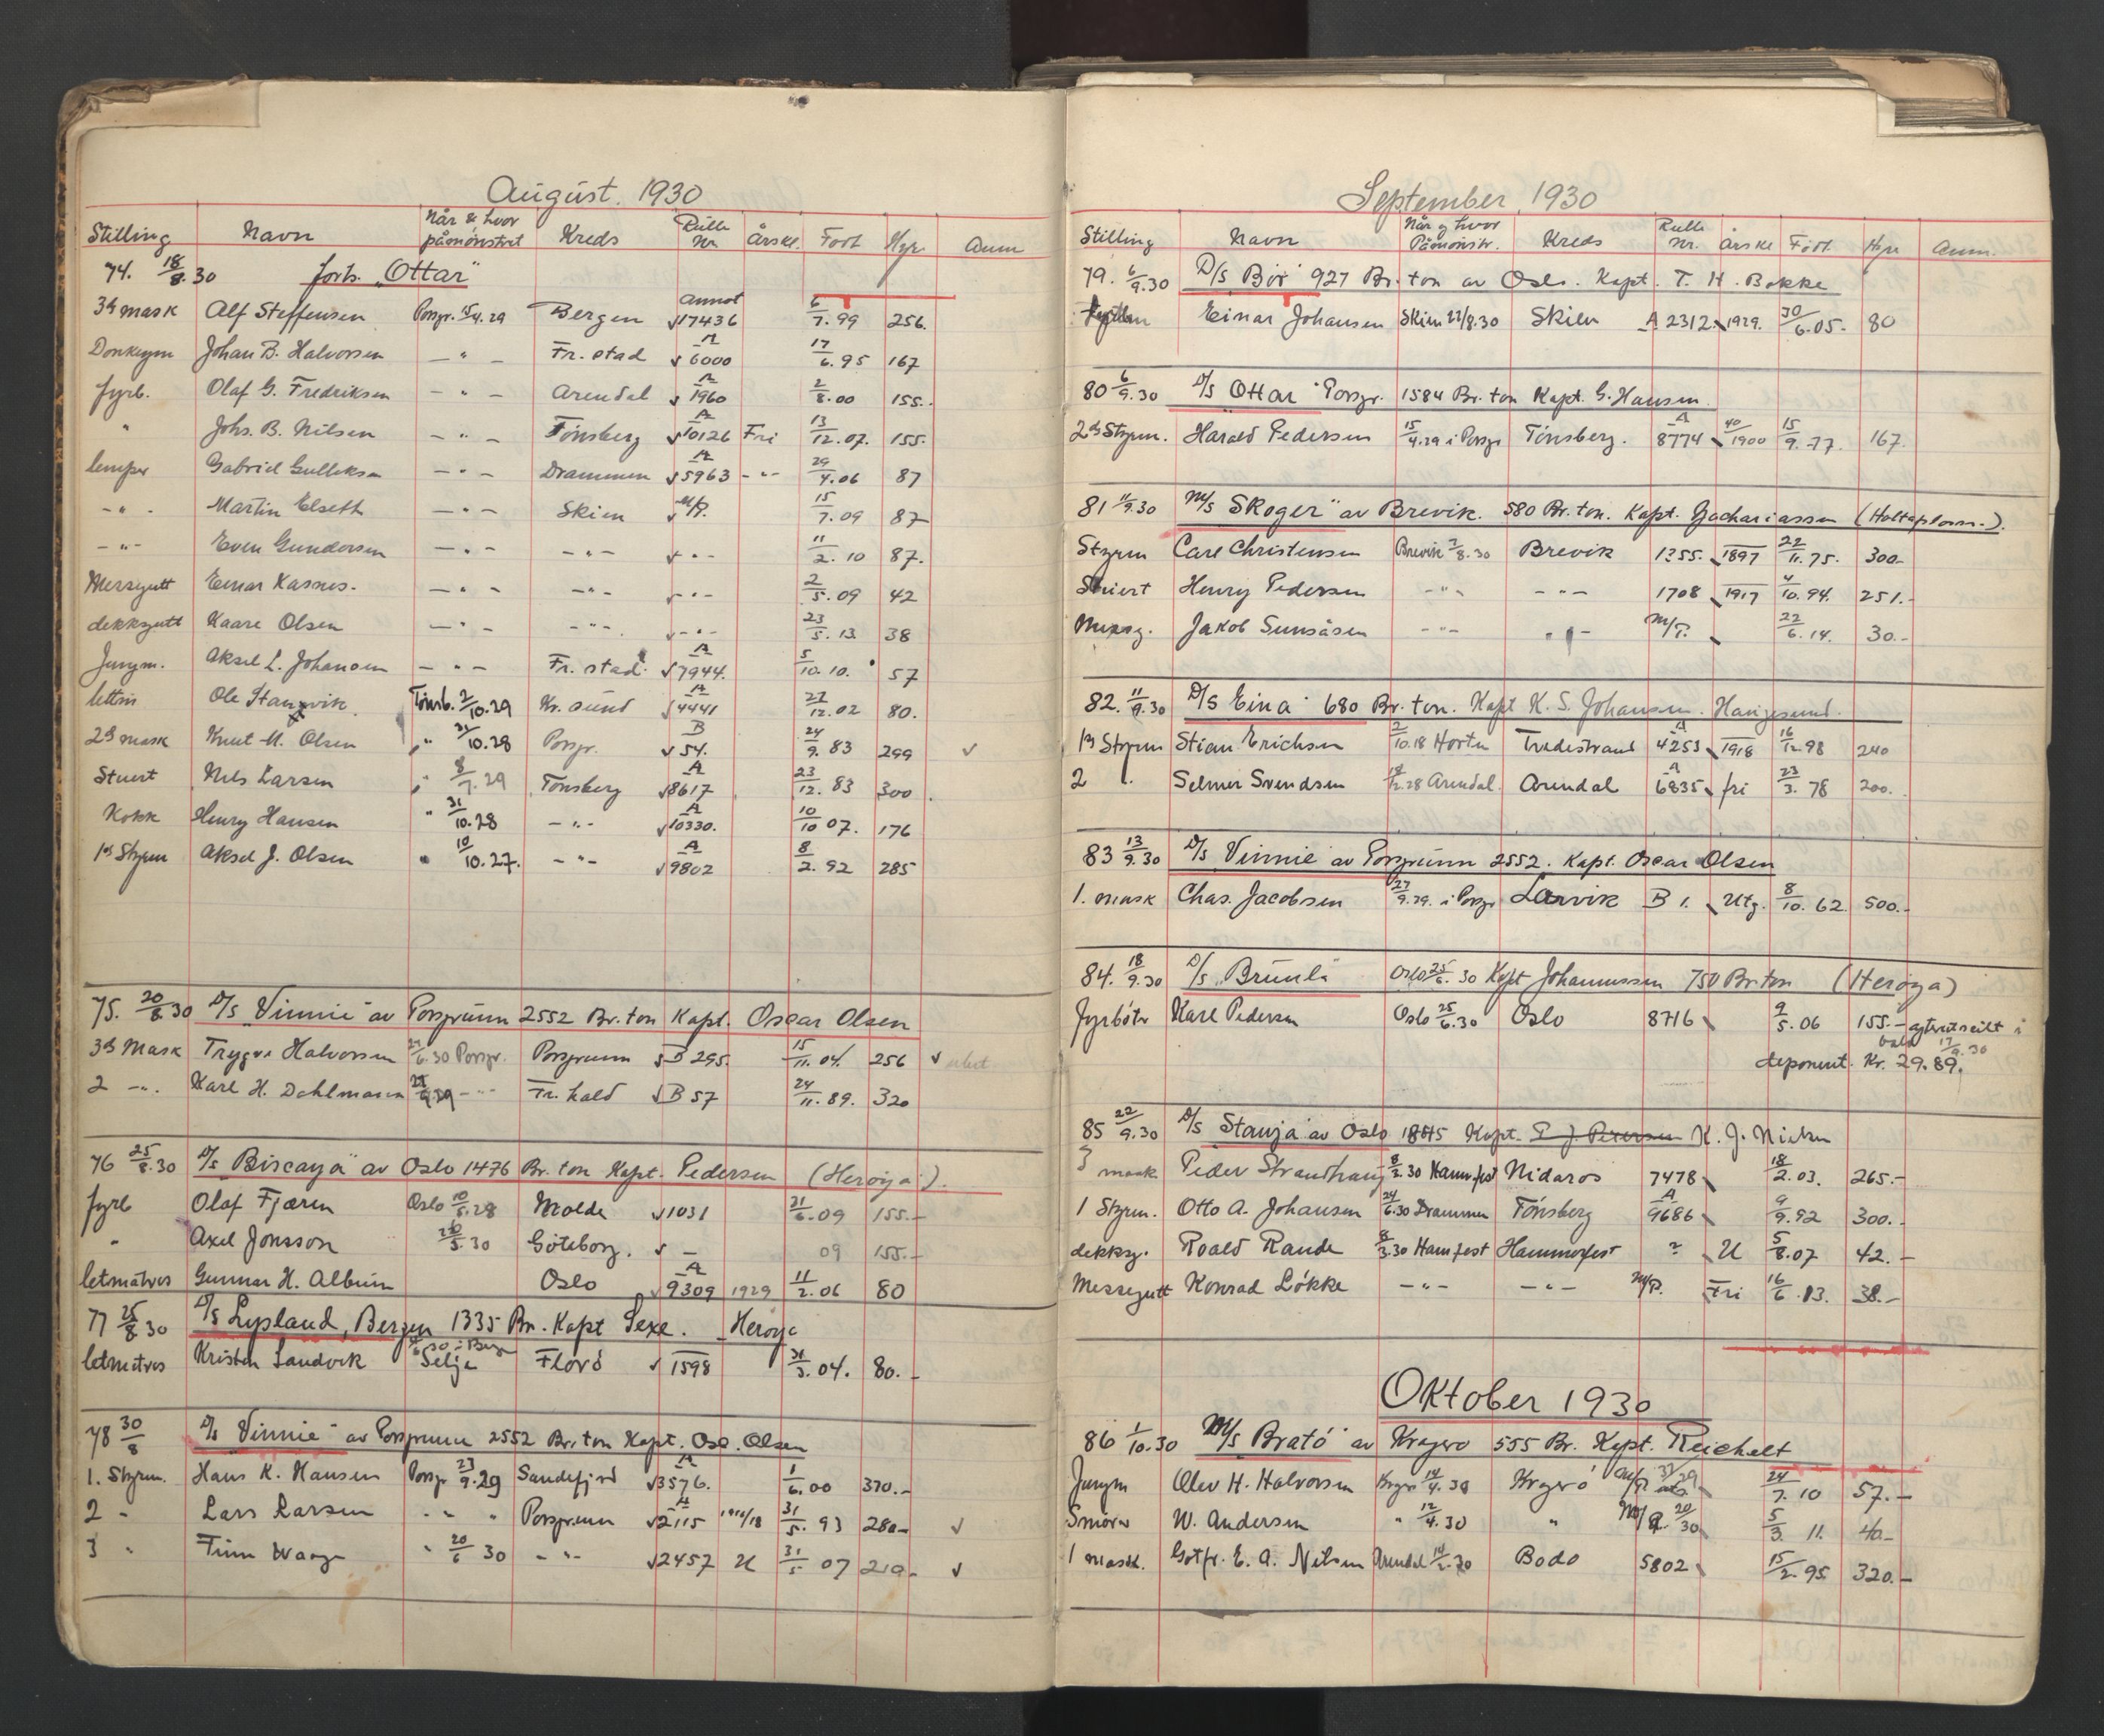 August. 1930
Stilling Navn Når & hvor påmønstret Kreds Rulle nr. Årskl. Født Hyre Anm
74. 18/8.30 forts. "Ottar"
3die mask Alf Steffensen Porsgr. 15/4.29 Bergen Annot 17436 6/7.99 256.
Donkeym Johan B. Halvorsen - " - Fr.stad A 6000 17/6.95 167
fyrb. Olaf G. Fredriksen - " - Arendal A 1960 2/8.00 155.
" Johs. B. Nilsen - " - Tönsberg A 10126 Fri 13/12.07. 155.
lemper Gabriel Gulliksen - " - Drammen A 5963 - " - 29/4.06 87
- " - Martin Elseth - " - Skien M/P. 15/7.09 87
- " - Even Gundersen - " - - " - - " - 11/2.10 87.
Messegutt Einar Kasnes. - " - - " - - " - 2/5.09 42
dekksgutt Kaare Olsen - " - - " - - " - 23/5.13 38
Jungm. Aksel L. Johansen - " - Fr.stad A 7944. 5/10.10. 57
lettm Ole Stangvik Tönsb. 2/10.29 Kr.sund A 4441 27/12.02 80.
2den mask Knut M. Olsen " 31/10.28 Porsgr. B 54. 24/9.83 299
Stuert Nils Larsen " 8/7.29 Tönsberg A 8617 23/12.83 300
Kokk Henry Hansen " 31/10.28 - " - A 10330. 10/10 07. 176
1ste Styrm Aksel J. Olsen " 10/10.27. - " - A 9802 8/2.92 285
75. 20/8.30 D/s "Vinnie" av Porsgrunn 2552 Br.ton Kapt. Oscar Olsen
3die Mask Trygve Halvorsen 6.30 Porsgr. Porsgrunn B 295. 15/11.04. 256
2 - " - Karl H. Dahlmann 29 - " - Fr.hald B 57 24/11.89. 320
76 25/8.30 D/s "Biscaya" av Oslo 1476 Br.ton Kapt. Pedersen (Heröya).
fyrb Olaf Fjæren Oslo 10/5.28 Molde 1031 21/6.09 155.-
" Axel Jonsson 20/5.30 Göteborg. - 09 155.-
letmatros Gunnar H. Album Oslo A 9309 1929 11/2.06 80
77 25/8 30 D/s Lysland, Bergen 1335 Br. Kapt Sexe. Heröya
letmatros Kristen Sandvik Selje Florö 1598 31/3.04. 80.-
78 30/8 D/s "Vinnie" av Porsgrunn 2552 Br.ton Kapt. Osc. Olsen
1. Styrm. Hans K. Hansen Porsgr 23/9.29 Sandefjord A 3576. 1/6.00 370.-
2 " Lars Larsen " " " Porsgrunn A 2115 1916/18 31/5.93 280.-
3 " Finn Waage " 20/6 30 - " - 2457 U 31/5 07 219.-
September, 1930
Stilling Navn Når og hvor Påmönstr. Kreds Rulle nr. Årskl Födt Hyre Anm.
79. 6/9.30 D/S "Bör" 927 Br.ton av Oslo. Kapt. T. H. Bakke
Einar Johansen Skien 22/8.30 Skien A 2312 1929. 30/6.05. 80
80 6/9.30 D/S "Ottar" Porsgr. 1584 Br.ton Kapt. G. Hansen.
2den Styrm. Harald Pedersen 15/4.29 i Porsgr Tönsberg. A 8774 40/1900 15/9.77. 167.
81 11/9.30 M/s "Skoger" av Brevik. 580 Br.ton. Kapt. Zachariassen
Styrm Carl Christensen Brevik 7/8.30 Brevik 1255. 1897 22/11.75. 300.-
Stuert Henry Pedersen - " - - " - 1708 1917 4/10.94. 251.-
Messg. Jakob Sunsåsen - " - - " - M/P. 22/6.14. 30.-
82. 11/9.30 D/S "Eina" 680 Br.ton. Kapt K. S. Johansen. Haugesund.
1ste Styrm Stian Erichsen 2/10.18 Horten Tvedestrand A 4253 1918 16/12.98 240
2 " Selmer Svendsen 18/2.28 Arendal. Arendal A 6835 fri 23/3.78 200.
83 13/9.30 D/S "Vinnie" av Porsgrunn 2552. Kapt. Oscar Olsen
1. mask Chas. Jacobsen 27/9.29. i Porsgr Larvik B 1. Utg. 8/10.62. 500.-
84. 18/9.30 D/s "Brünla" Oslo 25/6.30 Kapt Johannessen 750 Br.ton (Heröya)
Fyrböter Karl Pedersen Oslo 25/6.30 Oslo 8716 9/5.06 155.-
deponert. Kr. 29.89.
85 22/9.30 D/S "Stanja" av Oslo 1845 Kapt. P. J. Petersen K. J. Nielsen
3 mask. Peder Strandhaug 8/2.30 Hamrfest Nidaros 7478 18/2.03. 265.-
1 Styrm. Otto A. Johansen 24/6.30 Drammen Tönsberg A 9686 9/9.92 300.-
dekksg. Roald Rande 8/3.30 Hamfest Hammerfest ? U 5/8.07 42.-
Messegutt Konrad Lökke - " - - " - M/P. Fri 16/6.13. 38.-
Oktober 1930
86 1/10.30 M/s "Bratö" av Kragerö 555 Br. Kapt. Reichelt
Jungm Olev H. Halvorsen Kragerö 14/4.30 Kragerö 24/7.10 57.-
Smörer W. Andersen " 12/4.30 " 5/3 11. 40.-
1 mask. Gotfr. E. A. Nilsen Arendal 14/2.30 Bodö 5802 15/2.95 320.-